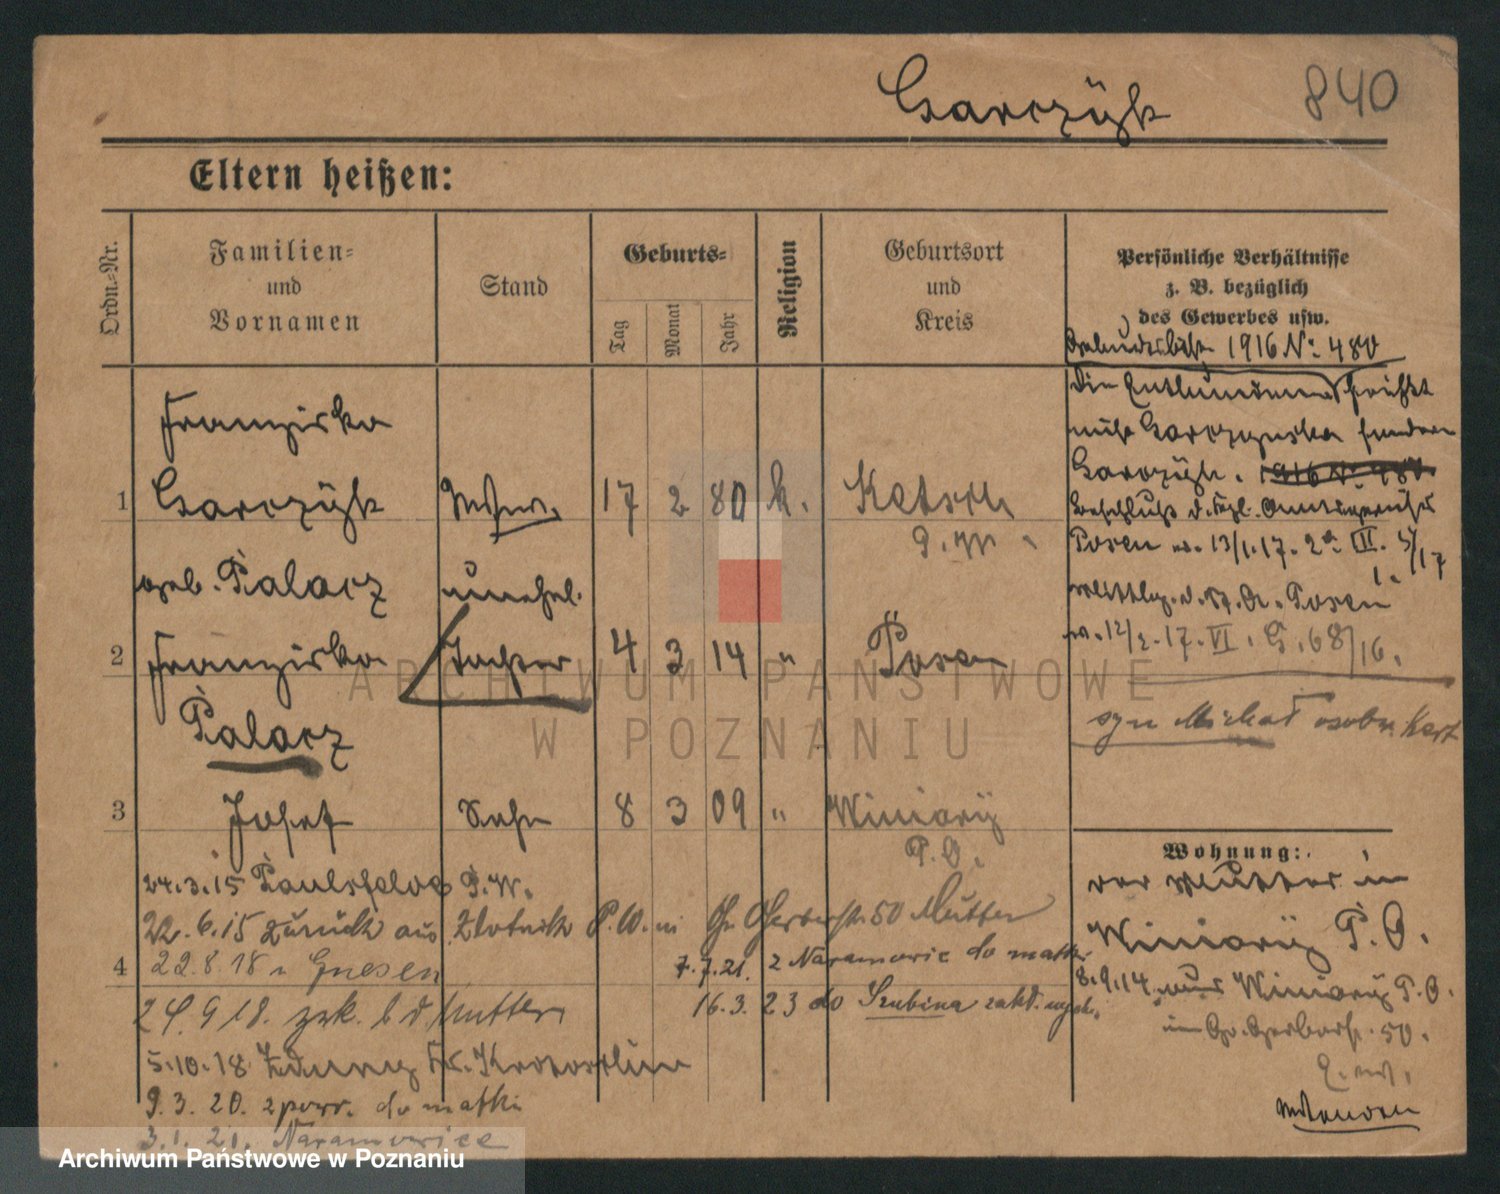 Garczyk
840
Eltern heißen:
Ordn.-Nr.
Familien-
und
Vornamen
Stand
Geburts-
Tag
Monat
Jahr
Religion
Geburtsort
und
Kreis
Persönliche Verhältnisse
z. B. bezüglich
des Gewerbes usw.
1916 Nr 480
Franziska
1 Garczÿk 17 2 80 k. Ketsch
P. W.
geb. Palacz unehel.
2 Franziska Tochter 4 3 14 " Posen
Palacz
3 Josef Sohn 8 3 09 " Winiarÿ
P. O.
Die
Garczynska sondern
Garczÿk. 1916 Nr 480
Beschluß d. Kgl. Amtsgerichts
Posen v. 13/1.17. 2a III. 5/17
1.
d. Posen
v. 12/2.17. VI. G. 68/16.
syn Michał osobn. Kart
Wohnung:
24.3.15 Paulsfelde P. W.
22.6.15 zurück aus Zlotnik P. W. in Gr. Gerberstr. 50 Mutter
4 22.8.18 n Gnesen
7.7.21. z Naramowic do matki
24.9.18. zrk. b d Mutter
16.3.23 do Szubina zakł. wych.
5.10.18 Zduny Kr. Krotoschin
9.3.20. z powr. do matki
3.1.21. Naramowice
Mutter in
Winiarÿ P. O.
8.9.14 aus Winiarÿ P. O.
in Gr. Gerberstr. 50.
ARCHIWUM PAŃSTWOWE
W POZNANIU
Archiwum Państwowe w Poznaniu